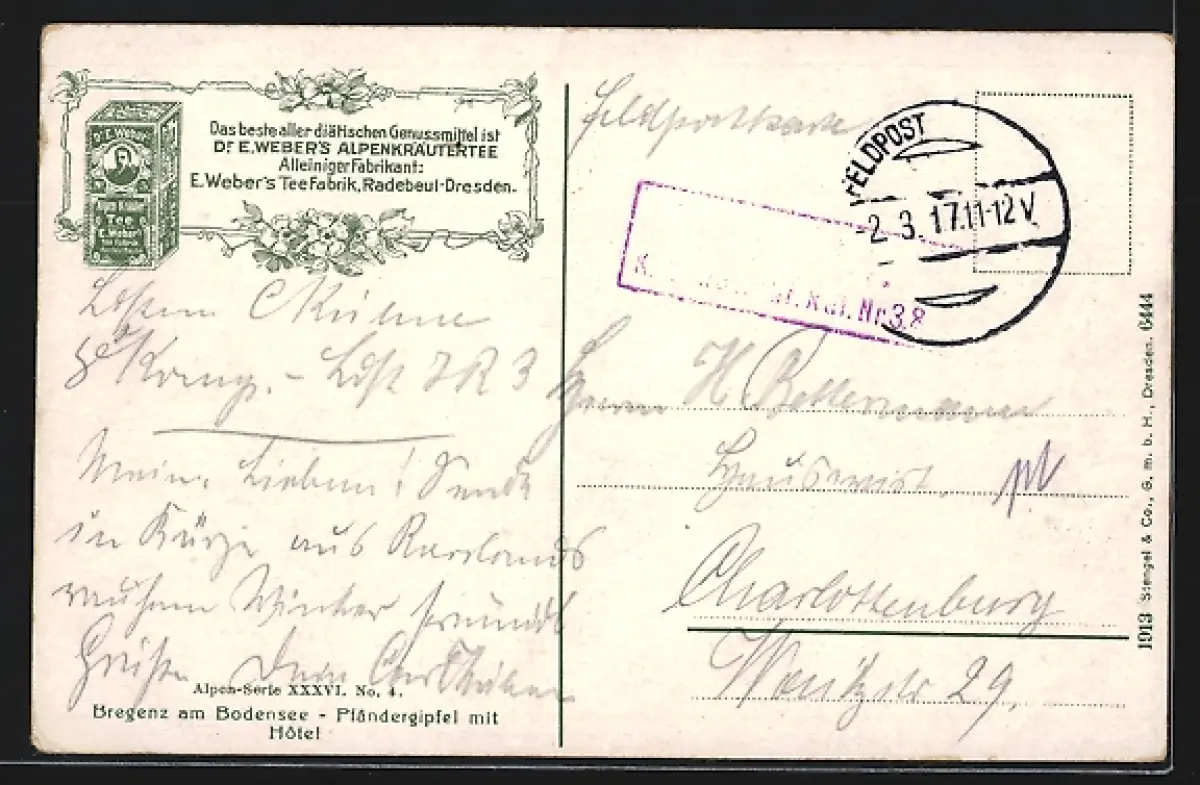 Das beste aller diätischen Genussmittel ist
Dr E. WEBER'S ALPENKRÄUTERTEE
Alleiniger Fabrikant:
E. Weber's Tee Fabrik, Radebeul-Dresden.
Dr. E. Weber
Tee
E. Weber
8te Komp. - JR 3
Meine Lieben! Sende
in Kürze aus Russlands
rauhem Winter freundl
Grüße Dein
Alpen-Serie XXXVI. No. 4.
Bregenz am Bodensee - Pfändergipfel mit
Hôtel
Feldpostkarte
FELDPOST
-2.3.17.11-12V
Nr. 38
Herrn H Bollermann
Hauswirt.
Charlottenburg
29.
1913 Stengel & Co., G. m. b. H., Dresden. 6444